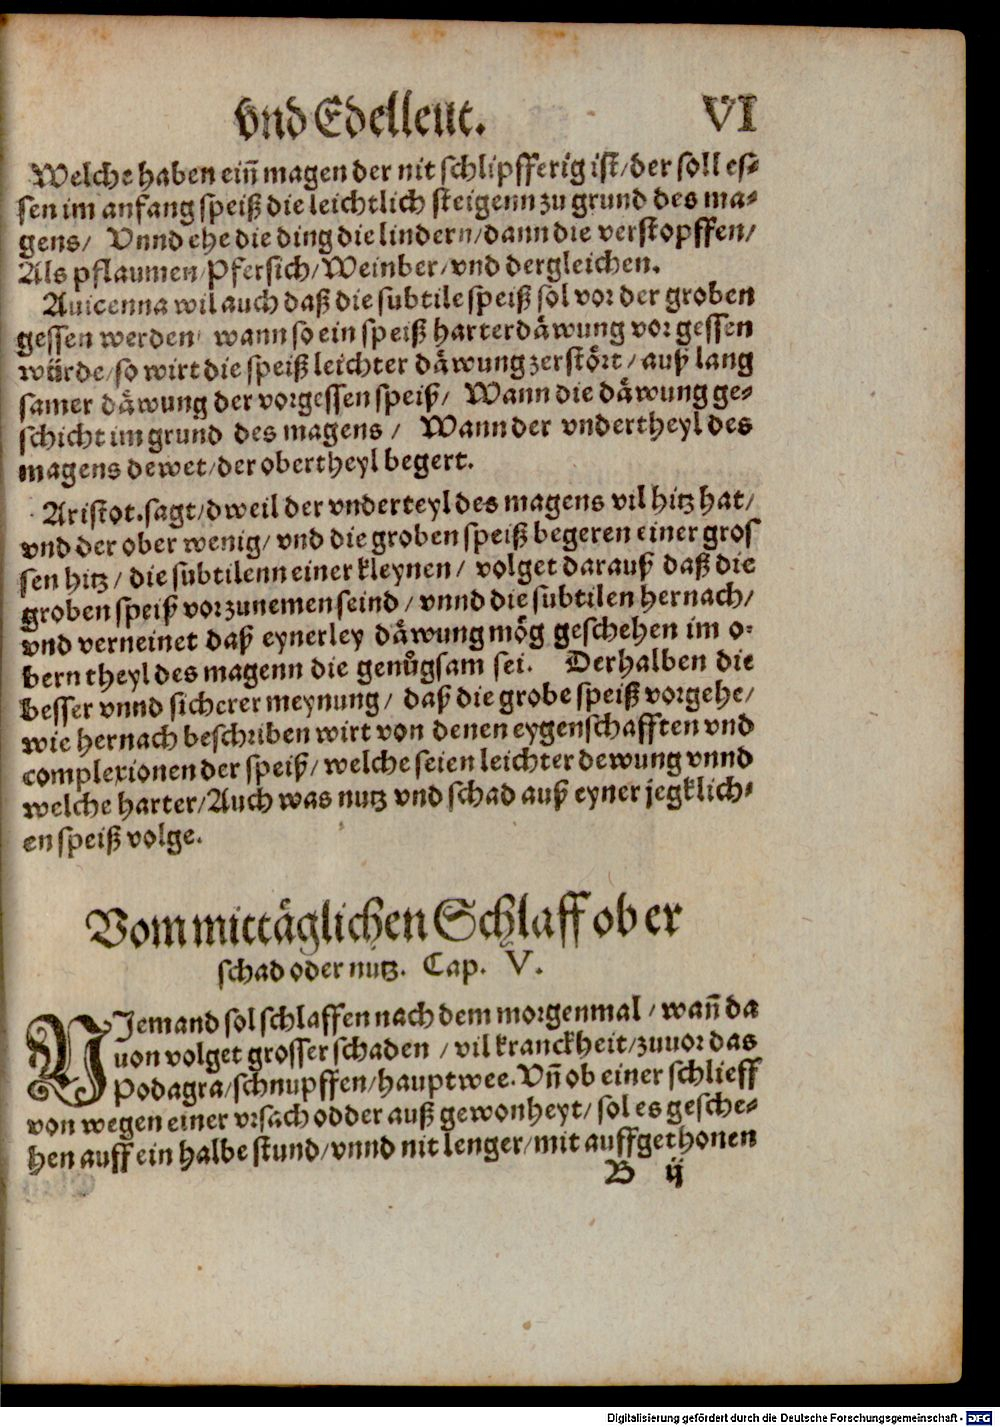 vnd Edelleut. VI
Welche haben eiñ magen der nit schlipfferig ist/der soll es-
sen im anfang speiß die leichtlich steigenn zu grund des ma-
gens/ Vnnd ehe die ding die lindern/dann die verstopffen/
Als pflaumen/Pfersich/Weinber/vnd dergleichen.
Auicenna wil auch daß die subtile speiß sol vor der groben
gessen werden/ wann so ein speiß harter däwung vor gessen
würde/so wirt die speiß leichter däwung zerstört/auß lang
samer däwung der vorgessen speiß/ Wann die däwung ge-
schicht im grund des magens/ Wann der vndertheyl des
magens dewet/der obertheyl begert.
Aristot.sagt/dweil der vnderteyl des magens vil hitz hat/
vnd der ober wenig/vnd die groben speiß begeren einer gros
sen hitz/die subtilenn einer kleynen/ volget darauß daß die
groben speiß vorzunemen seind/vnnd die subtilen hernach/
vnd verneinet daß eynerley däwung mög geschehen im o-
bern theyl des magenn die genůgsam sei. Derhalben die
besser vnnd sicherer meynung/ daß die grobe speiß vorgehe/
wie hernach beschriben wirt von denen eygenschafften vnd
complexionen der speiß/welche seien leichter dewung vnnd
welche harter/Auch was nutz vnd schad auß eyner jegklich-
en speiß volge.
Vom mittäglichen Schlaff ob er
schad oder nutz. Cap. V.
NIemand sol schlaffen nach dem morgenmal/wañ da
uon volget grosser schaden/vil kranckheit/zuuor das
Podagra/schnupffen/hauptwee.Vñ ob einer schlieff
von wegen einer vrsach odder auß gewonheyt/sol es gesche-
hen auff ein halbe stund/vnnd nit lenger/mit auffgethonen
B ij
Digitalisierung gefördert durch die Deutsche Forschungsgemeinschaft - DFG